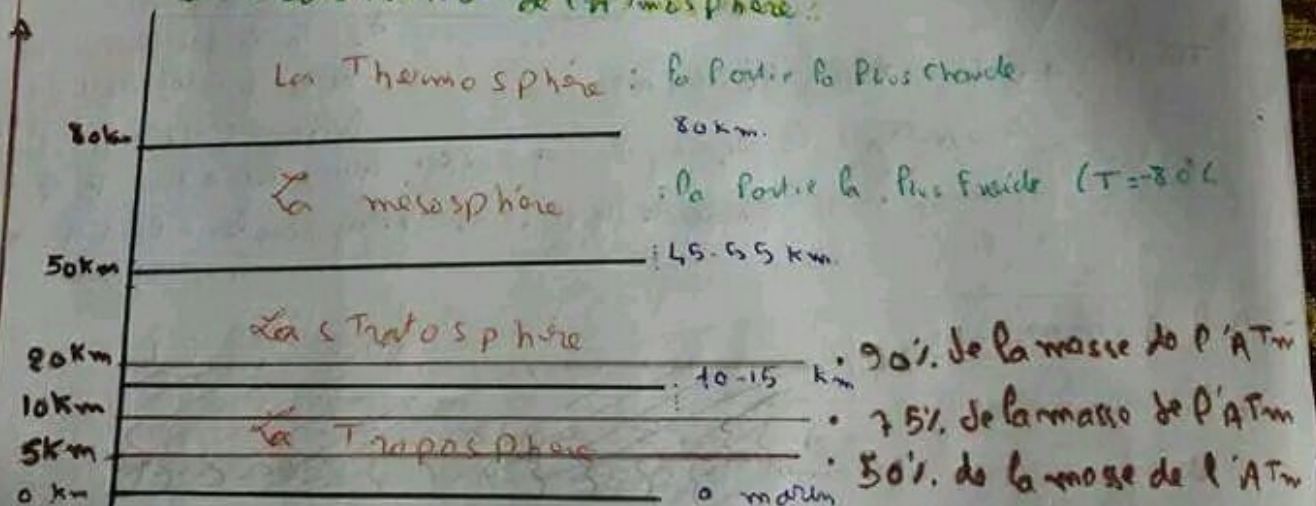 de l'Atmosphère :
La Thermosphère : la Partie la Plus chaude
80km 80km.
La mésosphère : la Partie la Plus froide (T=-80°C
50km 45-55 km.
La sTratosphère
20km 90% de la masse de l'ATm
10-15 km
10km 75% de la masse de l'ATm
La Troposphère
5km 50% de la masse de l'ATm
0 km 0